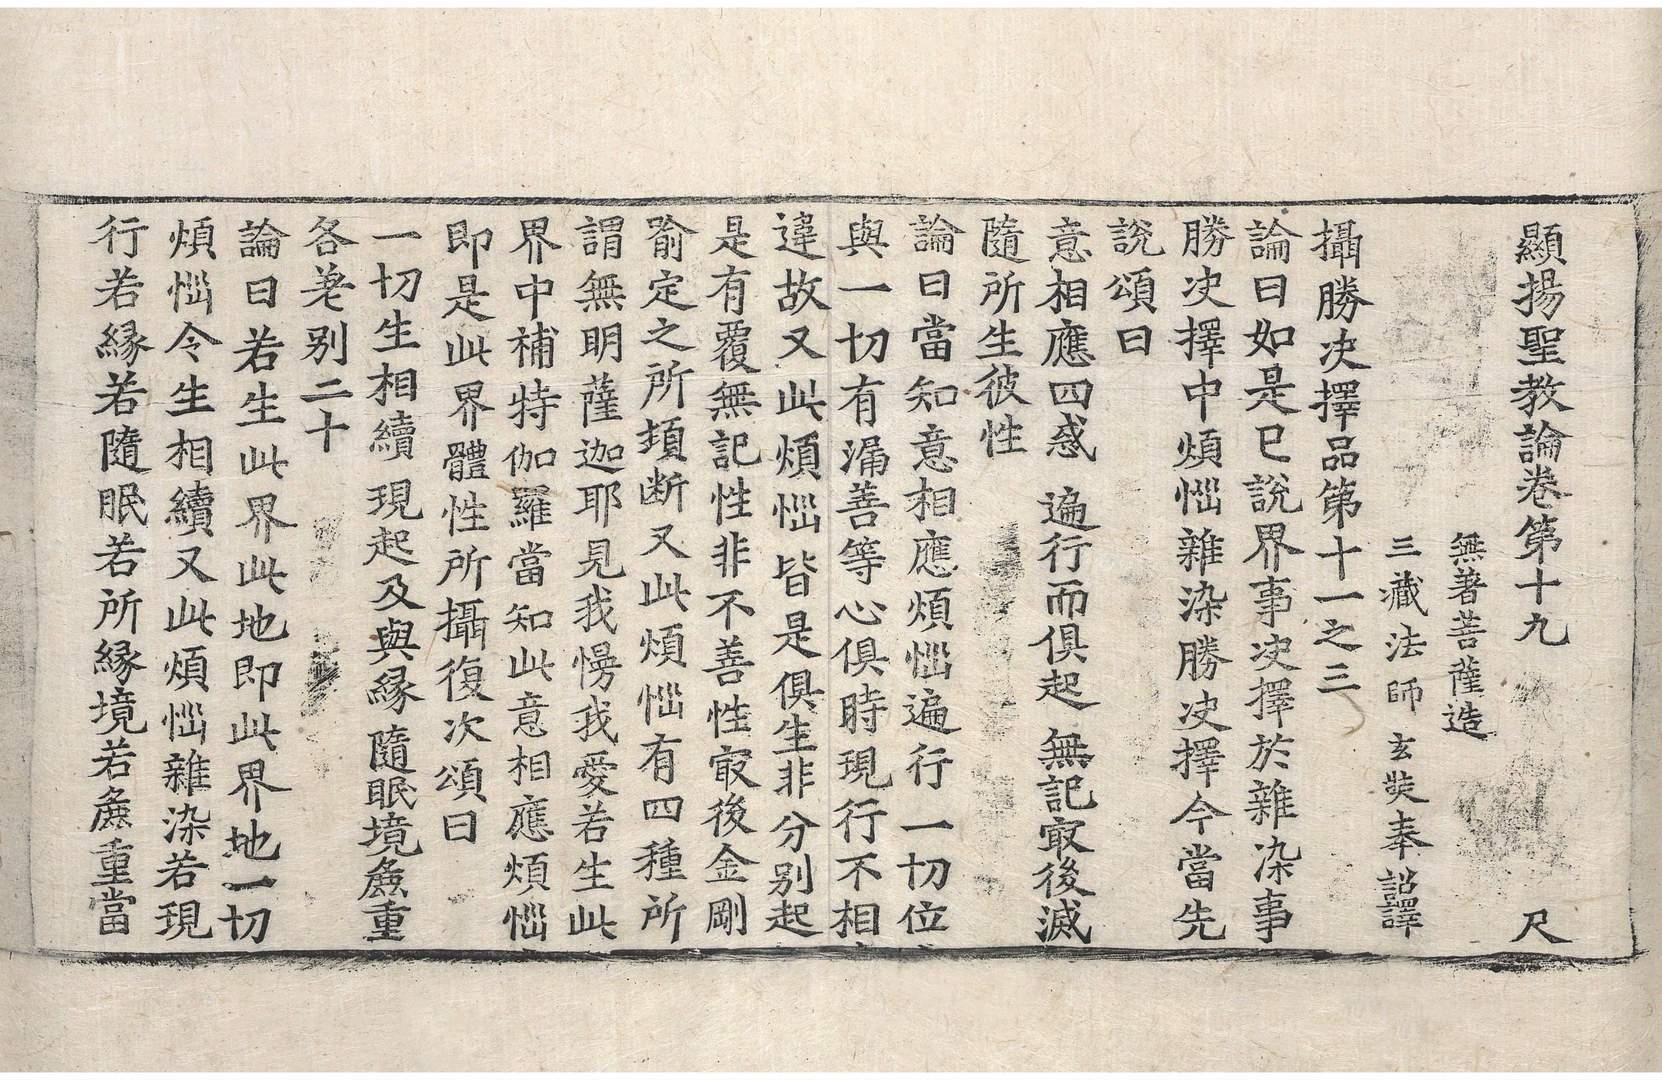 顯揚聖教論卷第十九　尺
無著菩薩造
三藏法師玄奘奉　詔譯
攝勝决擇品第十一之三
論曰如是已說界事决擇於雜染事
勝决擇中煩惱雜染勝决擇今當先
說頌曰
意相應四惑　遍行而俱起　無記㝡後滅
隨所生彼性
論曰當知意相應煩惱遍行一切位
與一切有漏善等心俱時現行不相
違故又此煩惱皆是俱生非分別起
是有覆無記性非不善性㝡後金剛
喻定之所頓断又此煩惱有四種所
謂無明薩迦耶見我慢我愛若生此
界中補特伽羅當知此意相應煩惱
即是此界體性所攝復次頌曰
一切生相續　現起及與緣　隨眠境麁重
各差別二十
論曰若生此界此地即此界地一切
煩惱令生相續又此煩惱雜染若現
行若緣若隨眠若所緣境若麁重當